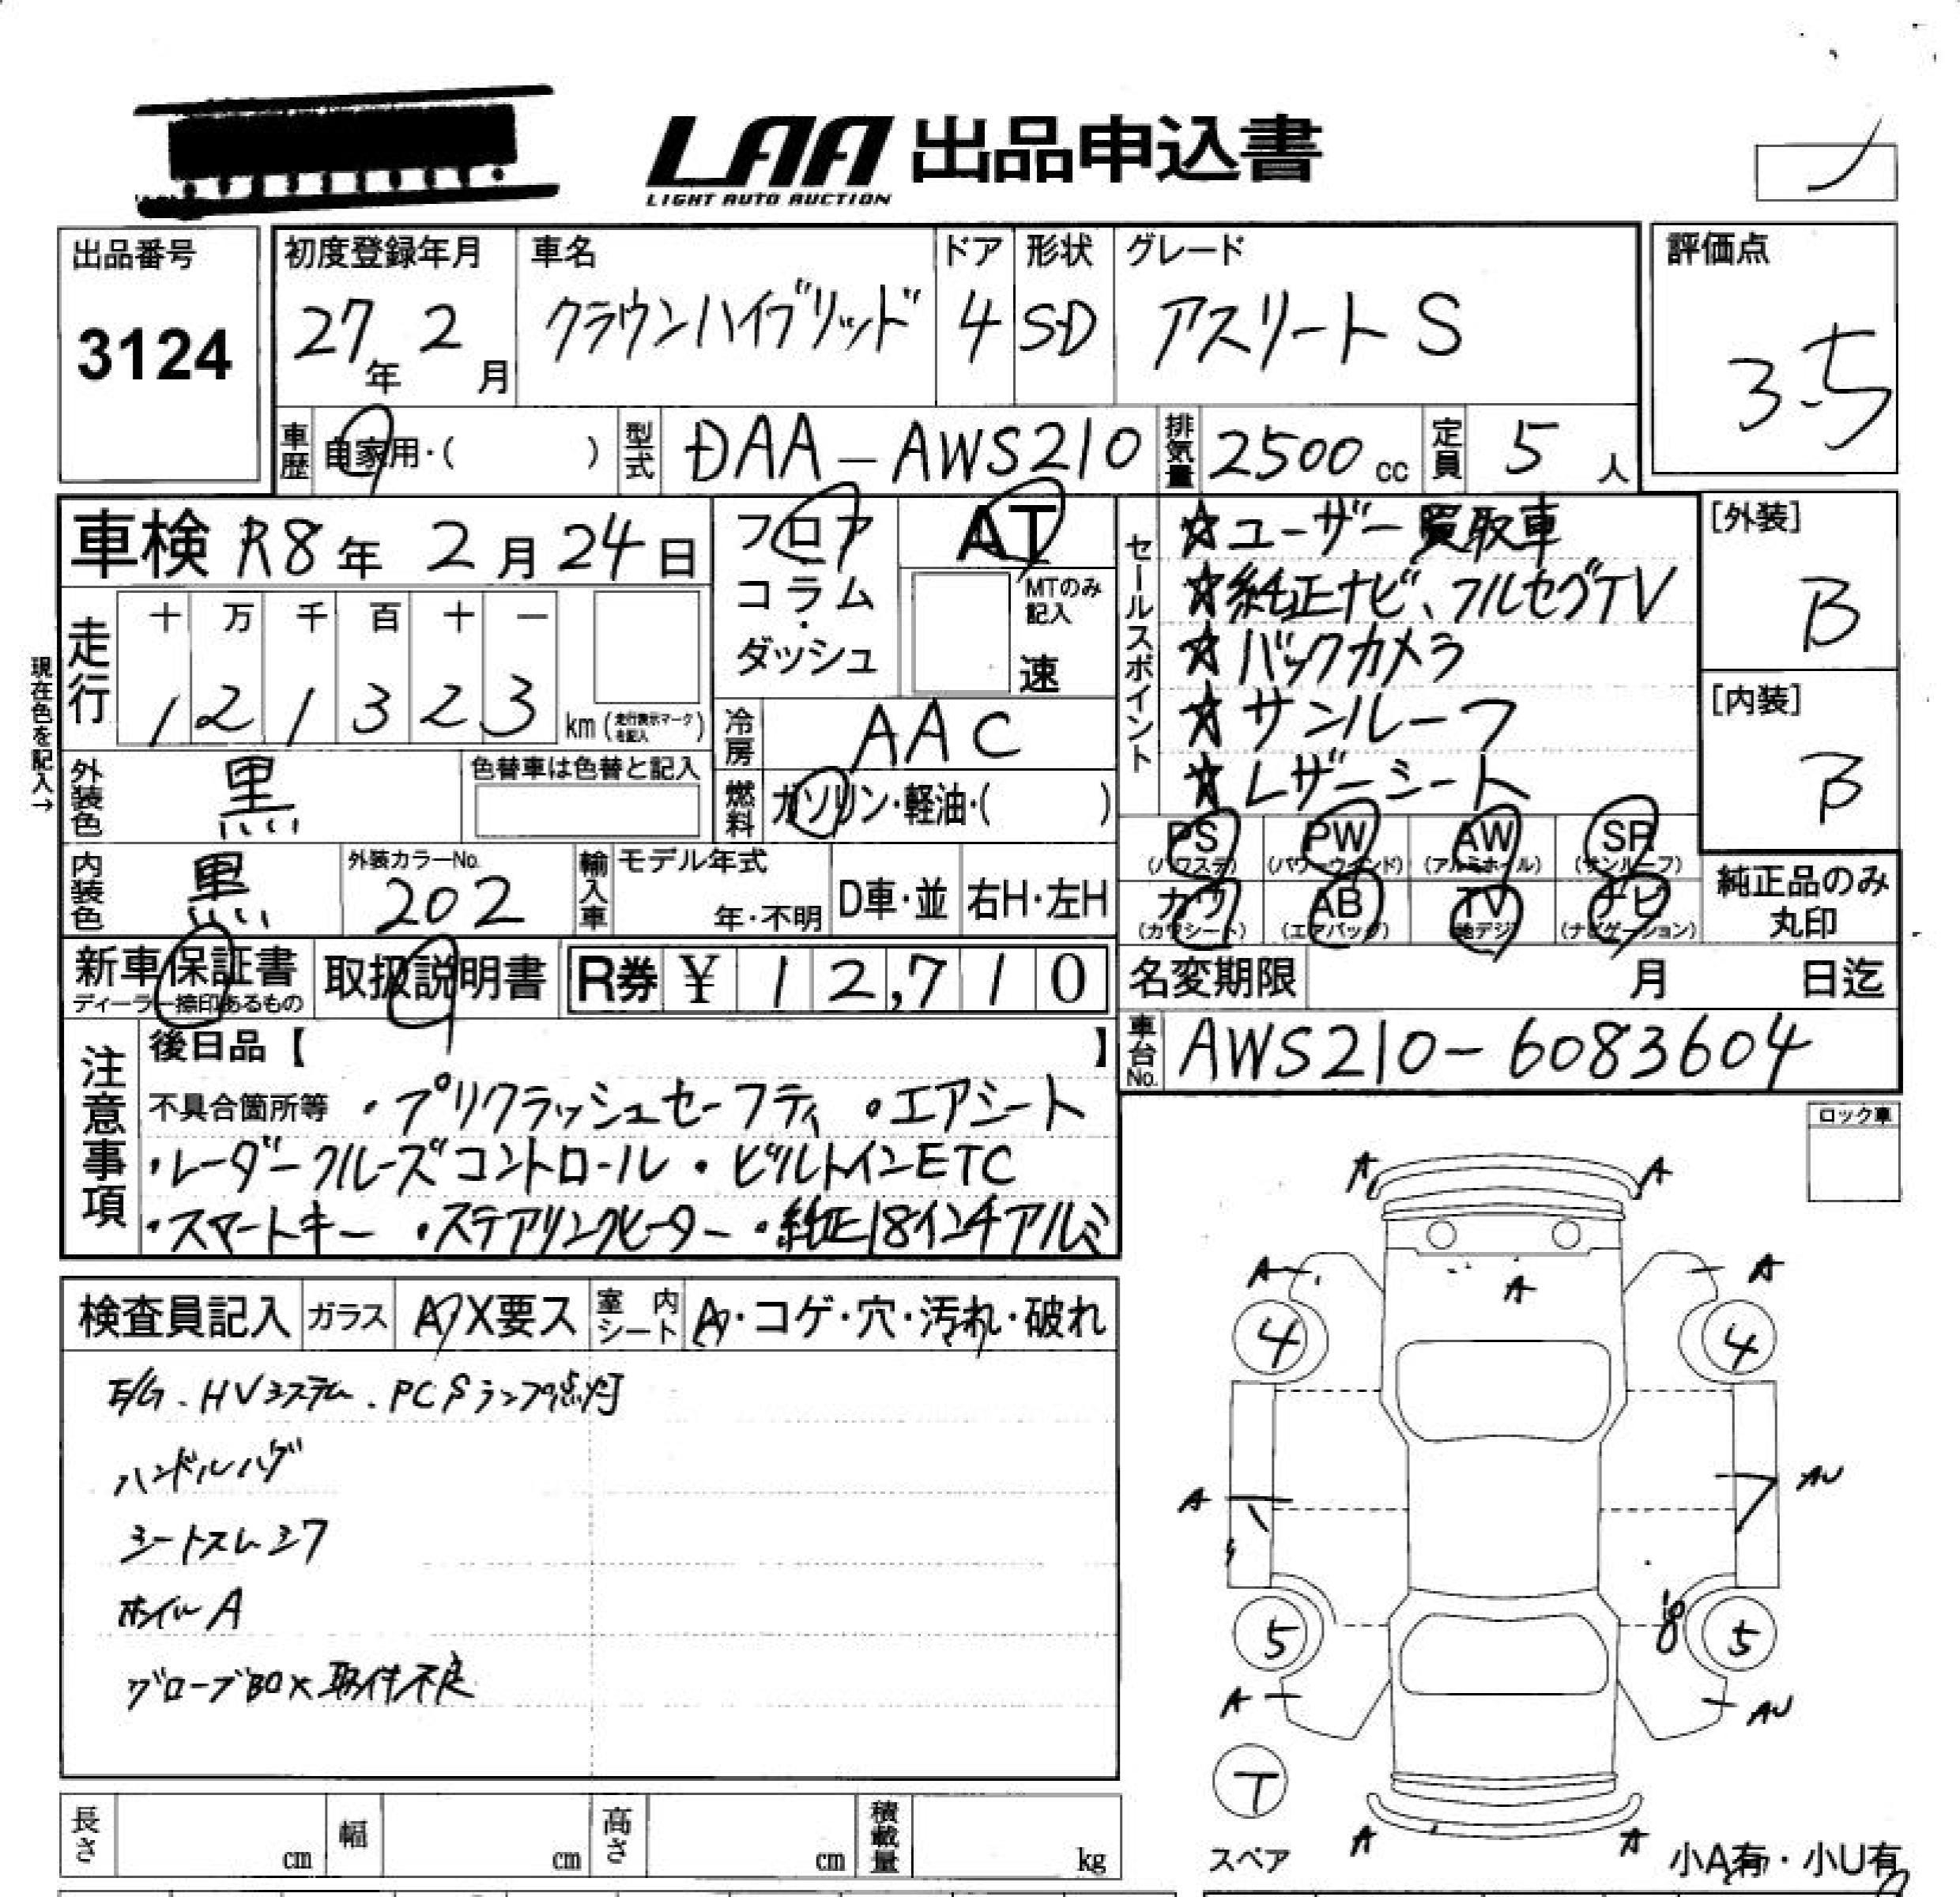 LAA 出品申込書
LIGHT AUTO AUCTION
出品番号
3124
初度登録年月
27年 2月
車名
クラウンハイブリッド
ドア
4
形状
SD
グレード
アスリート S
評価点
3.5
車歴 自家用・( )
型式 DAA-AWS210
排気量 2500 cc
定員 5 人
車検 R8年 2月 24日
フロア
コラム・
ダッシュ
AT
MTのみ記入
速
走行
十 万 千 百 十 一
1 2 1 3 2 3 km (走行表示マークを記入)
現在色を記入→
冷房 AAC
燃料 ガソリン・軽油・( )
外装色 黒
色替車は色替と記入
内装色 黒
外装カラーNo.
202
輸入車
モデル年式
年・不明
D車・並
右H・左H
セールスポイント
☆ユーザー買取車
☆純正ナビ、フルセグTV
☆バックカメラ
☆サンルーフ
☆レザーシート
[外装]
B
[内装]
B
PS PW AW SR
(パワステ) (パワーウインド) (アルミホイール) (サンルーフ)
カワ AB TV ナビ
(カワシート) (エアバッグ) 地デジ (ナビゲーション)
純正品のみ
丸印
新車保証書
ディーラー捺印あるもの
取扱説明書
R券 ¥ 12,710
名変期限 月 日迄
車台No. AWS210-6083604
注意事項
後日品【 】
不具合箇所等 ・プリクラッシュセーフティ ・エアシート
・レーダークルーズコントロール ・ビルトインETC
・スマートキー ・ステアリングヒーター ・純正18インチアルミ
ロック車
検査員記入 ガラス A/X要ス 室内シート A・コゲ・穴・汚れ・破れ
E/G、HVシステム、PCSランプ点灯
ハンドルハゲ
シートスレ、シワ
ホイルA
グローブBOX取付不良
A A
A A A
4 4
A AU
5 5
A AU
T
スペア
A A
小A有・小U有
長さ cm
幅 cm
高さ cm
積載量 kg